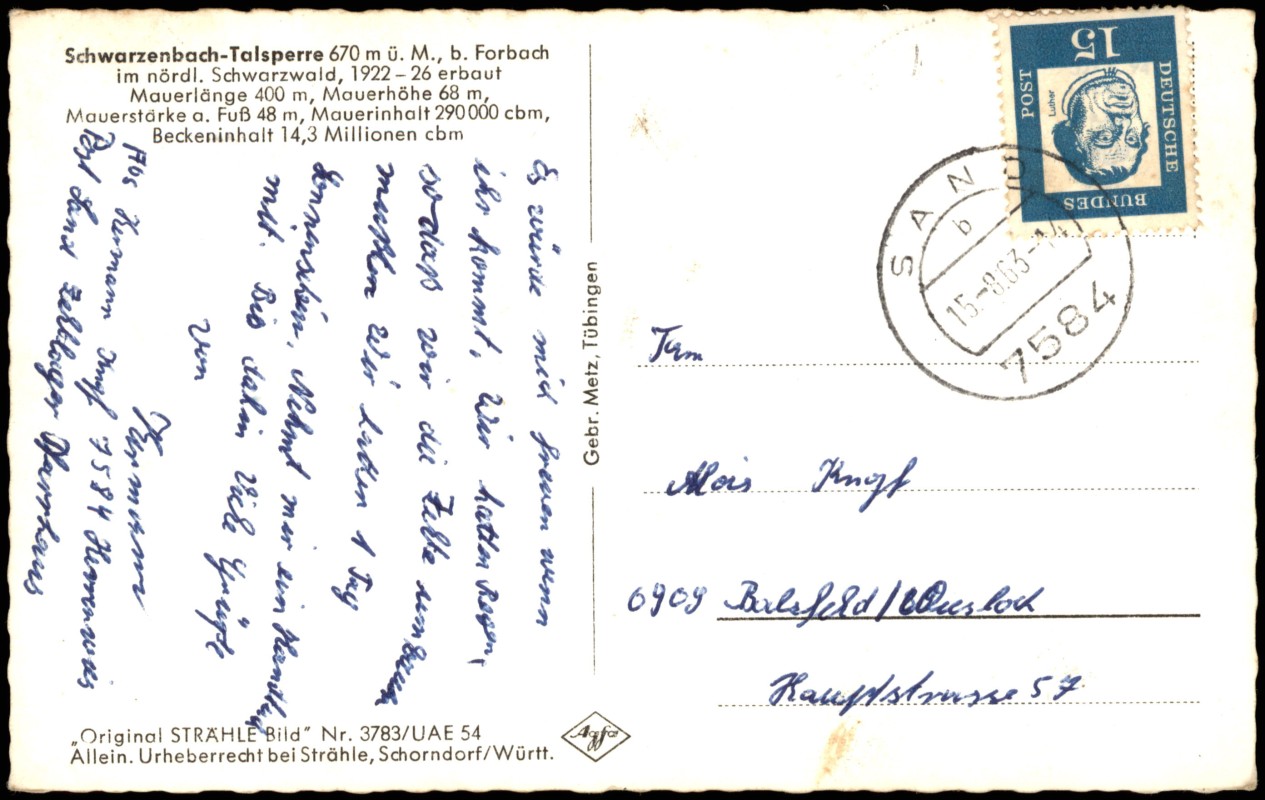 Schwarzenbach-Talsperre 670 m ü. M., b. Forbach
im nördl. Schwarzwald, 1922-26 erbaut
Mauerlänge 400 m, Mauerhöhe 68 m,
Mauerstärke a. Fuß 48 m, Mauerinhalt 290000 cbm,
Beckeninhalt 14,3 Millionen cbm
Es würde mich freuen wenn
ihr kommt. Wir hatten Regen,
so daß wir die Zelte
mußten. Wir hatten 1 Tag
Nehmt mir ein
mit. Bis dahin Viele Grüße
von
Hermann
Abs Hermann Knopf 7584
Post Sand Zeltlager
Gebr. Metz, Tübingen
„Original STRÄHLE Bild" Nr. 3783/UAE 54
Allein. Urheberrecht bei Strähle, Schorndorf/Württ.
Agfa
DEUTSCHE
BUNDES
POST
15
Luther
SAND
b
15.-8.63-14
7584
Fam
Alois Knopf
6909 Balzfeld/Wiesloch
Hauptstrasse 57